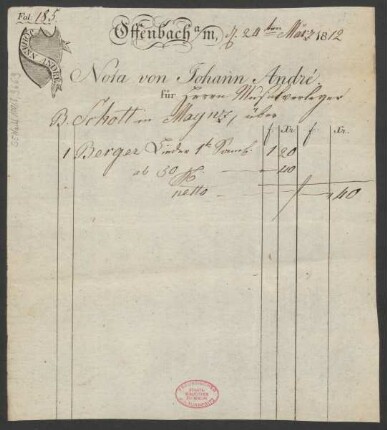 Fol. 185
JOHANN ANDRÉ
Offenbach a/m, d. 24ten März 1812
Nota von Johann André
für Herrn Musikverleger
B. Schott in Maynz, über
f. Xr. f. Xr.
1 Berger Lieder 1te Samml 1 20
ab 50 % — 40
netto — f — 40